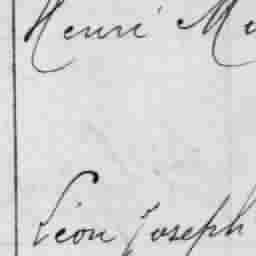 Henri
Léon Joseph